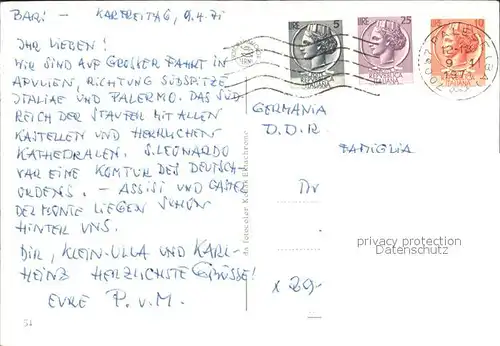 BARI – KARFREITAG, 9.4.71
IHR LIEBEN!
WIR SIND AUF GROSSER FAHRT IN
APULIEN, RICHTUNG SÜDSPITZE
ITALIAE UND PALERMO. DAS SÜD
REICH DER STAUFER MIT ALLEN
KASTELLEN UND HERRLICHEN
KATHEDRALEN. S. LEONARDO
WAR EINE KOMTUR DES DEUTSCH-
ORDENS. – ASSISI UND CASTEL
DEL MONTE LIEGEN SCHON
HINTER UNS.
DIR, KLEIN-ULLA UND KARL-
HEINZ HERZLICHSTE GRÜSSE!
EURE P. v. M.
51
da fotocolor Kodak Ektachrome
LIRE 5
REPUBBLICA
ITALIANA
LIRE 25
REPUBBLICA
ITALIANA
LIRE 10
ITALIANA
1971
GERMANIA
D.D.R.
FAMIGLIA
x 29-
privacy protection
Datenschutz